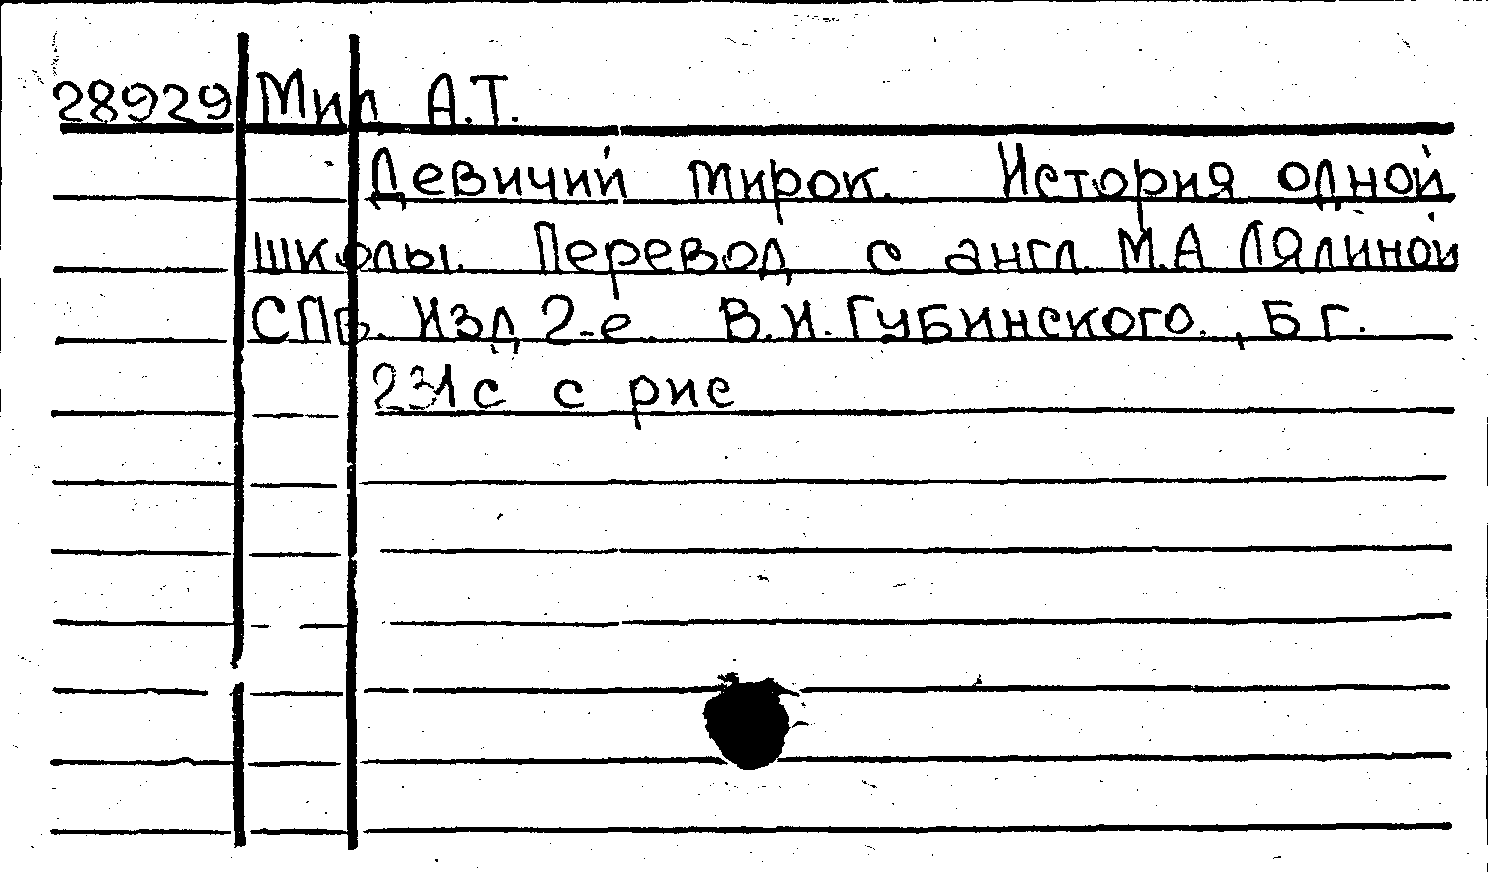 28929 Мид А.Т.
Девичий мирок. История одной
школы. Перевод с англ. М.А Лялиной
СПв. Изд. 2-е. В.И.Губинского., Б г.
231с с рис